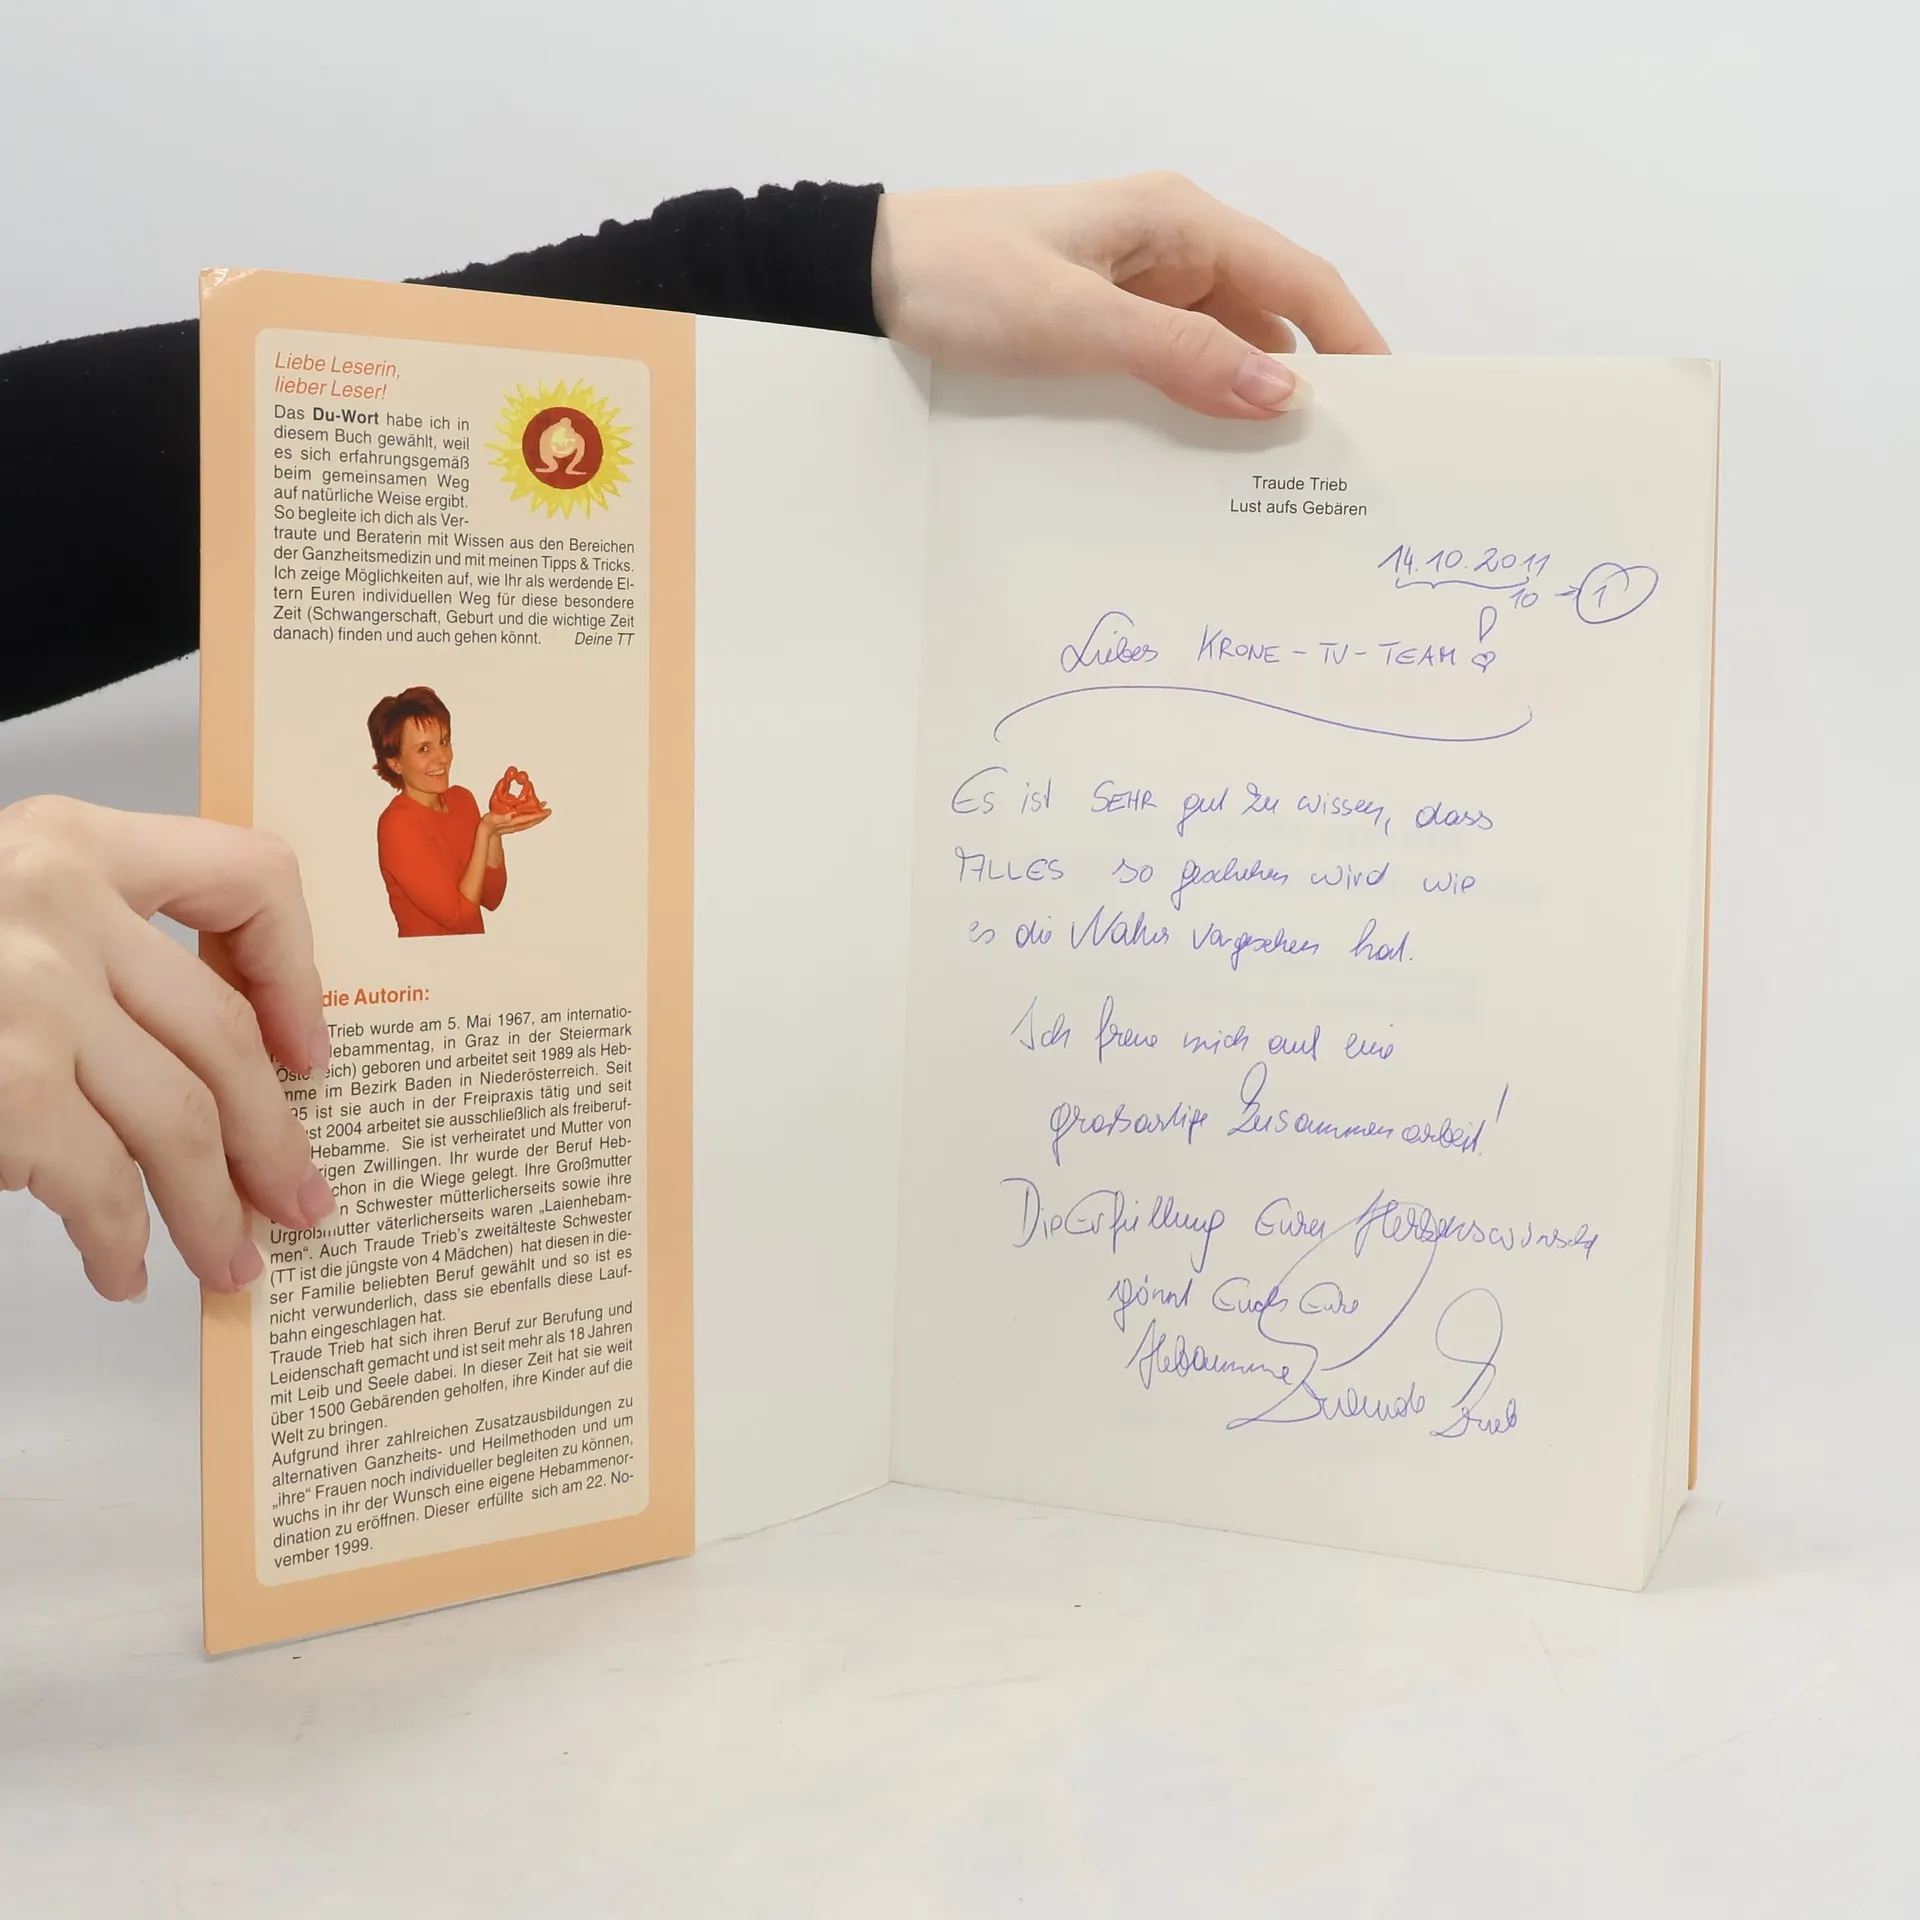 Liebe Leserin,
lieber Leser!
Das Du-Wort habe ich in
diesem Buch gewählt, weil
es sich erfahrungsgemäß
beim gemeinsamen Weg
auf natürliche Weise ergibt.
So begleite ich dich als Ver-
traute und Beraterin mit Wissen aus den Bereichen
der Ganzheitsmedizin und mit meinen Tipps & Tricks.
Ich zeige Möglichkeiten auf, wie Ihr als werdende El-
tern Euren individuellen Weg für diese besondere
Zeit (Schwangerschaft, Geburt und die wichtige Zeit
danach) finden und auch gehen könnt. Deine TT
die Autorin:
Trieb wurde am 5. Mai 1967, am internatio-
lebammentag, in Graz in der Steiermark
eich) geboren und arbeitet seit 1989 als Heb-
mme im Bezirk Baden in Niederösterreich. Seit
95 ist sie auch in der Freipraxis tätig und seit
st 2004 arbeitet sie ausschließlich als freiberuf-
Hebamme. Sie ist verheiratet und Mutter von
rigen Zwillingen. Ihr wurde der Beruf Heb-
chon in die Wiege gelegt. Ihre Großmutter
n Schwester mütterlicherseits sowie ihre
Urgroßmutter väterlicherseits waren „Laienhebam-
men“. Auch Traude Trieb's zweitälteste Schwester
(TT ist die jüngste von 4 Mädchen) hat diesen in die-
ser Familie beliebten Beruf gewählt und so ist es
nicht verwunderlich, dass sie ebenfalls diese Lauf-
bahn eingeschlagen hat.
Traude Trieb hat sich ihren Beruf zur Berufung und
Leidenschaft gemacht und ist seit mehr als 18 Jahren
mit Leib und Seele dabei. In dieser Zeit hat sie weit
über 1500 Gebärenden geholfen, ihre Kinder auf die
Welt zu bringen.
Aufgrund ihrer zahlreichen Zusatzausbildungen zu
alternativen Ganzheits- und Heilmethoden und um
„ihre“ Frauen noch individueller begleiten zu können,
wuchs in ihr der Wunsch eine eigene Hebammenor-
dination zu eröffnen. Dieser erfüllte sich am 22. No-
vember 1999.
Traude Trieb
Lust aufs Gebären
14.10.2011
10 → 1
Liebes KRONE-TV-TEAM!
Es ist SEHR gut zu wissen, dass
ALLES so geschehen wird wie
es die Natur vorgesehen hat.
Ich freue mich auf eine
großartige Zusammenarbeit!
Die Erfüllung Eurer Herzenswünsche
gönnt Euch Eure
Hebamme Traude Trieb